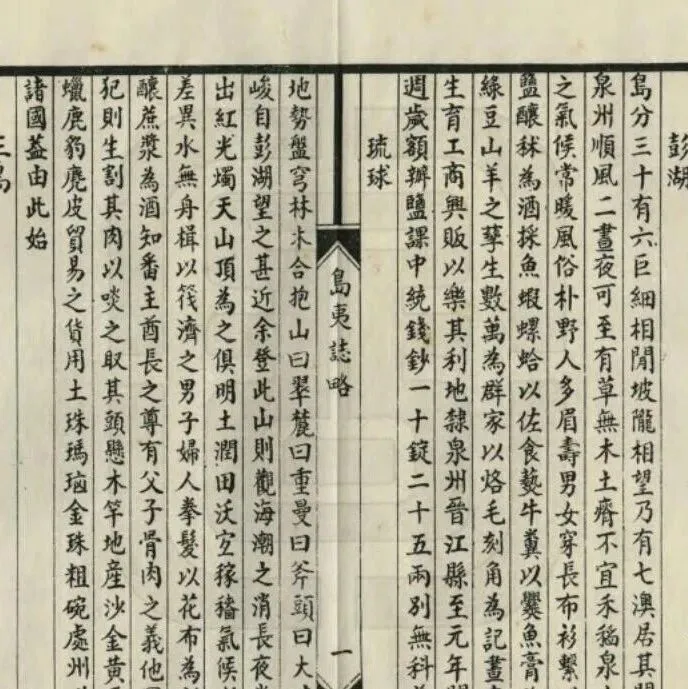 彭湖
島分三十有六巨細相閒坡隴相望乃有七澳居其閒
泉州順風二晝夜可至有草無木土瘠不宜禾稻泉
之氣候常暖風俗朴野人多眉壽男女穿長布衫繫
鹽釀秫為酒採魚蝦螺蛤以佐食爇牛糞以爨魚膏
綠豆山羊之孳生數萬為群家以烙毛刻角為記晝
生育工商興販以樂其利地隸泉州晉江縣至元年閒
週歲額辦鹽課中統錢鈔一十錠二十五兩別無科
琉球
島夷誌略
一
地勢盤穹林木合抱山曰翠麓曰重曼曰斧頭曰大
峻自彭湖望之甚近余登此山則觀海潮之消長夜
出紅光燭天山頂為之俱明土潤田沃宜稼穡氣候
差異水無舟楫以筏濟之男子婦人拳髮以花布為
釀蔗漿為酒知番主酋長之尊有父子骨肉之義他
犯則生割其肉以啖之取其頭懸木竿地產沙金黃
蠟鹿豹麂皮貿易之貨用土珠瑪瑙金珠粗碗處州
諸國葢由此始
三島